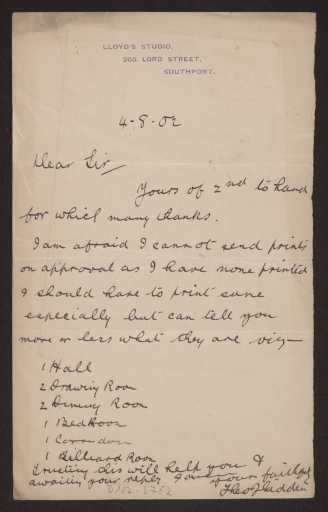 LLOYD'S STUDIO,
265 LORD STREET,
SOUTHPORT.
4-8-02
Dear Sir
Yours of 2nd to hand
for which many thanks.
I am afraid I cannot send prints
on approval as I have none printed
& should have to print same
especially but can tell you
more or less what they are viz
1 Hall
2 Drawing Room
2 Dining Room
1 Bedroom
1 Corridor
1 Billiard Room
Trusting this will help you &
awaiting your reply I am
yours faithfully